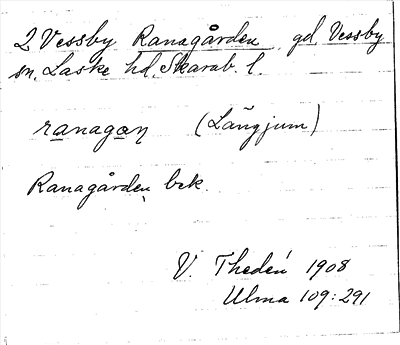 2 Vessby Ranagården gd Vessby
sn. Laske hd. Skarab. l.
ranagan (Långjum)
Ranagården bek.
V. Thedeń 1908
Ulma 109:291